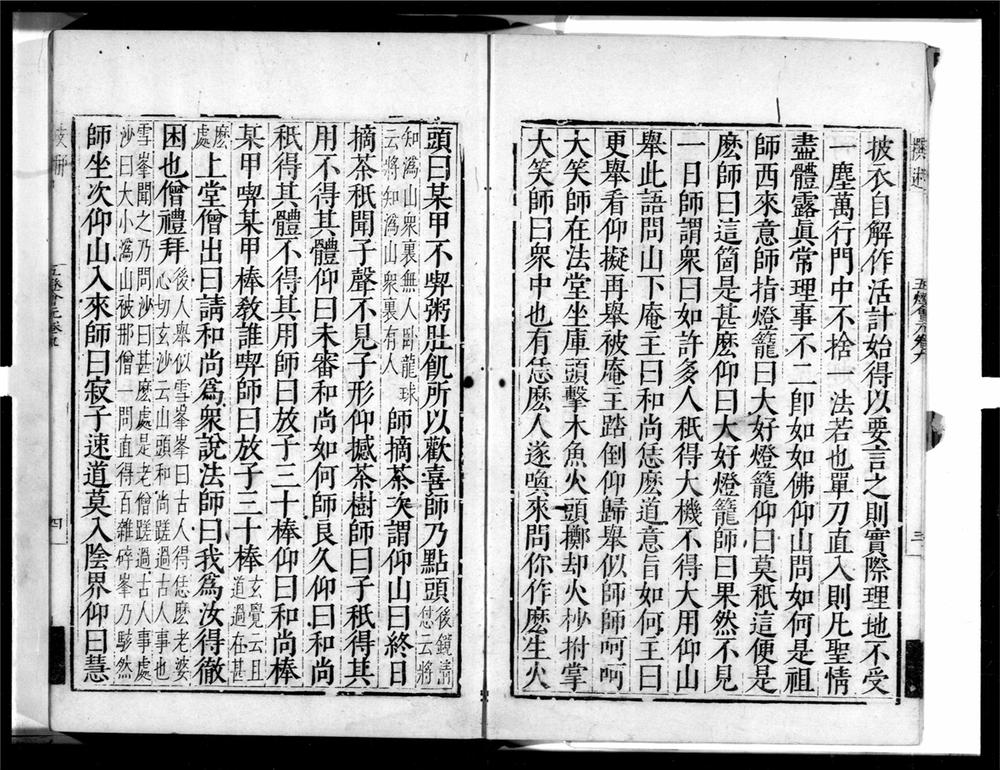 披衣自解作活計始得以要言之則實際理地不受
一塵萬行門中不捨一法若也單刀直入則凡聖情
盡體露眞常理事不二卽如如佛仰山問如何是祖
師西來意師指燈籠曰大好燈籠仰曰莫秖這便是
麽師曰這箇是甚麽仰曰大好燈籠師曰果然不見
一日師謂衆曰如許多人秖得大機不得大用仰山
舉此語問山下庵主曰和尚恁麽道意旨如何主曰
更舉看仰擬再舉被庵主踏倒仰歸舉似師師呵呵
大笑師在法堂坐庫頭擊木魚火頭擲却火杪拊掌
大笑師曰衆中也有恁麽人遂喚來問你作麽生火
頭曰某甲不喫粥肚飢所以歡喜師乃點頭後鏡淸恁云將
知潙山衆裏無人臥龍球云將知潙山衆裏有人師摘茶次謂仰山曰終日
摘茶秖聞子聲不見子形仰撼茶樹師曰子秖得其
用不得其體仰曰未審和尚如何師良久仰曰和尚
秖得其體不得其用師曰放子三十棒仰曰和尚棒
某甲喫某甲棒敎誰喫師曰放子三十棒玄覺云且道過在甚
麽處上堂僧出曰請和尚爲衆說法師曰我爲汝得徹
困也僧禮拜後人舉似雪峯峯曰古人得恁麽老婆心切玄沙云山頭和尚蹉過古人事也
雪峯聞之乃問沙曰甚麽處是老僧蹉過古人事處沙曰大小潙山被那僧一問直得百雜碎峯乃駭然
師坐次仰山入來師曰寂子速道莫入陰界仰曰慧
三
四